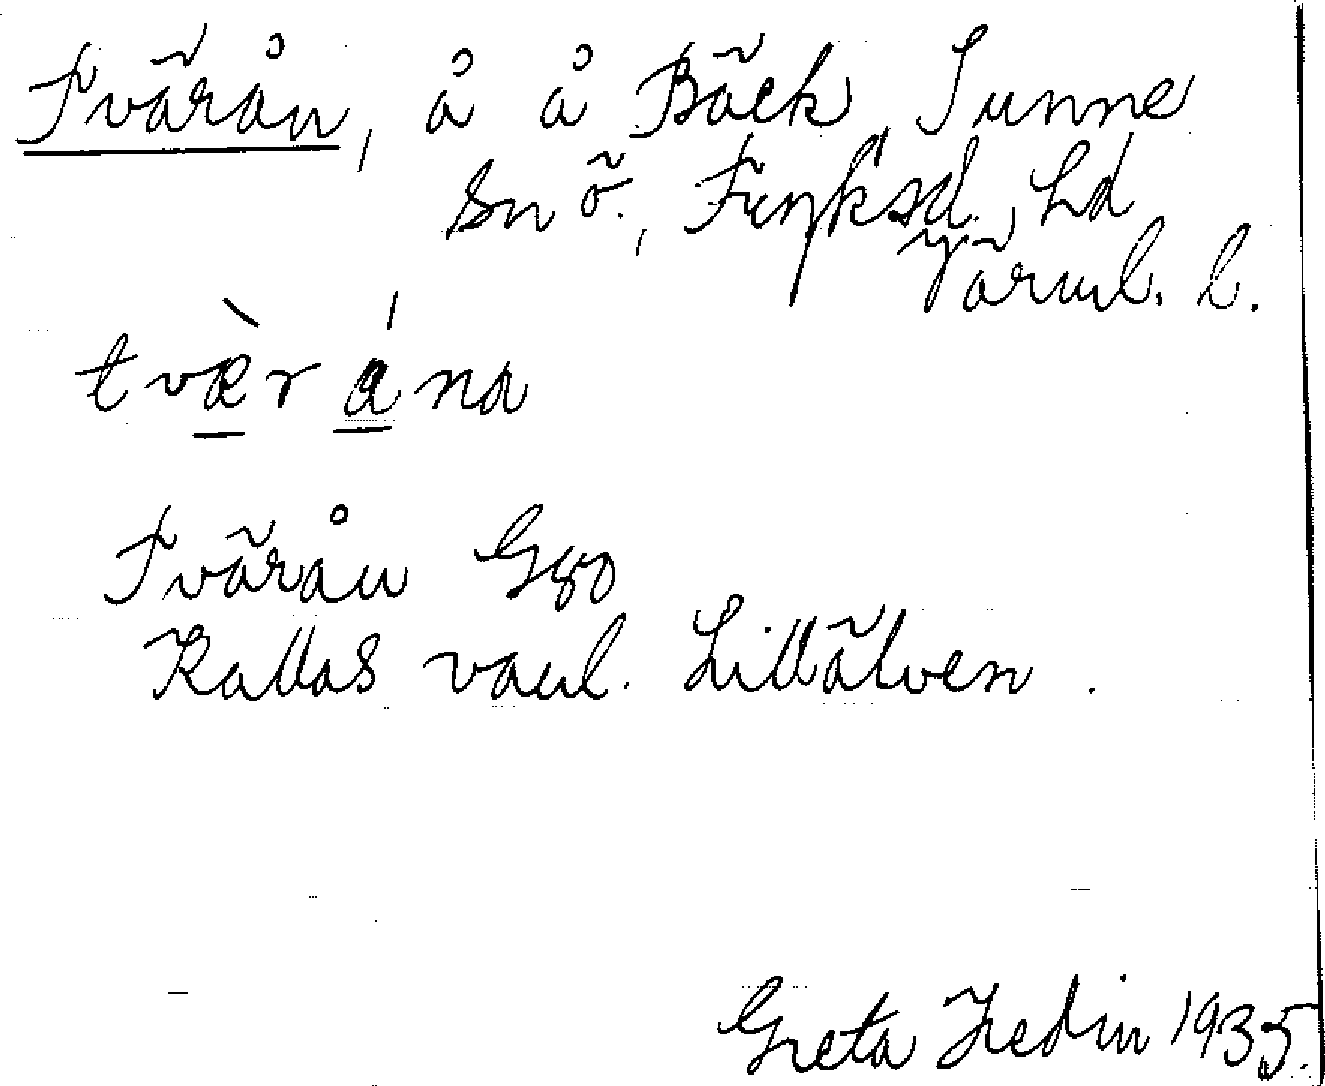 Tvärån, å å Bäck, Sunne
sn ö., Fryksd. hd
Värml. l.
tværána
Tvärån Gäo
Kallas vanl. Lillälven.
Greta Hedin 1935.